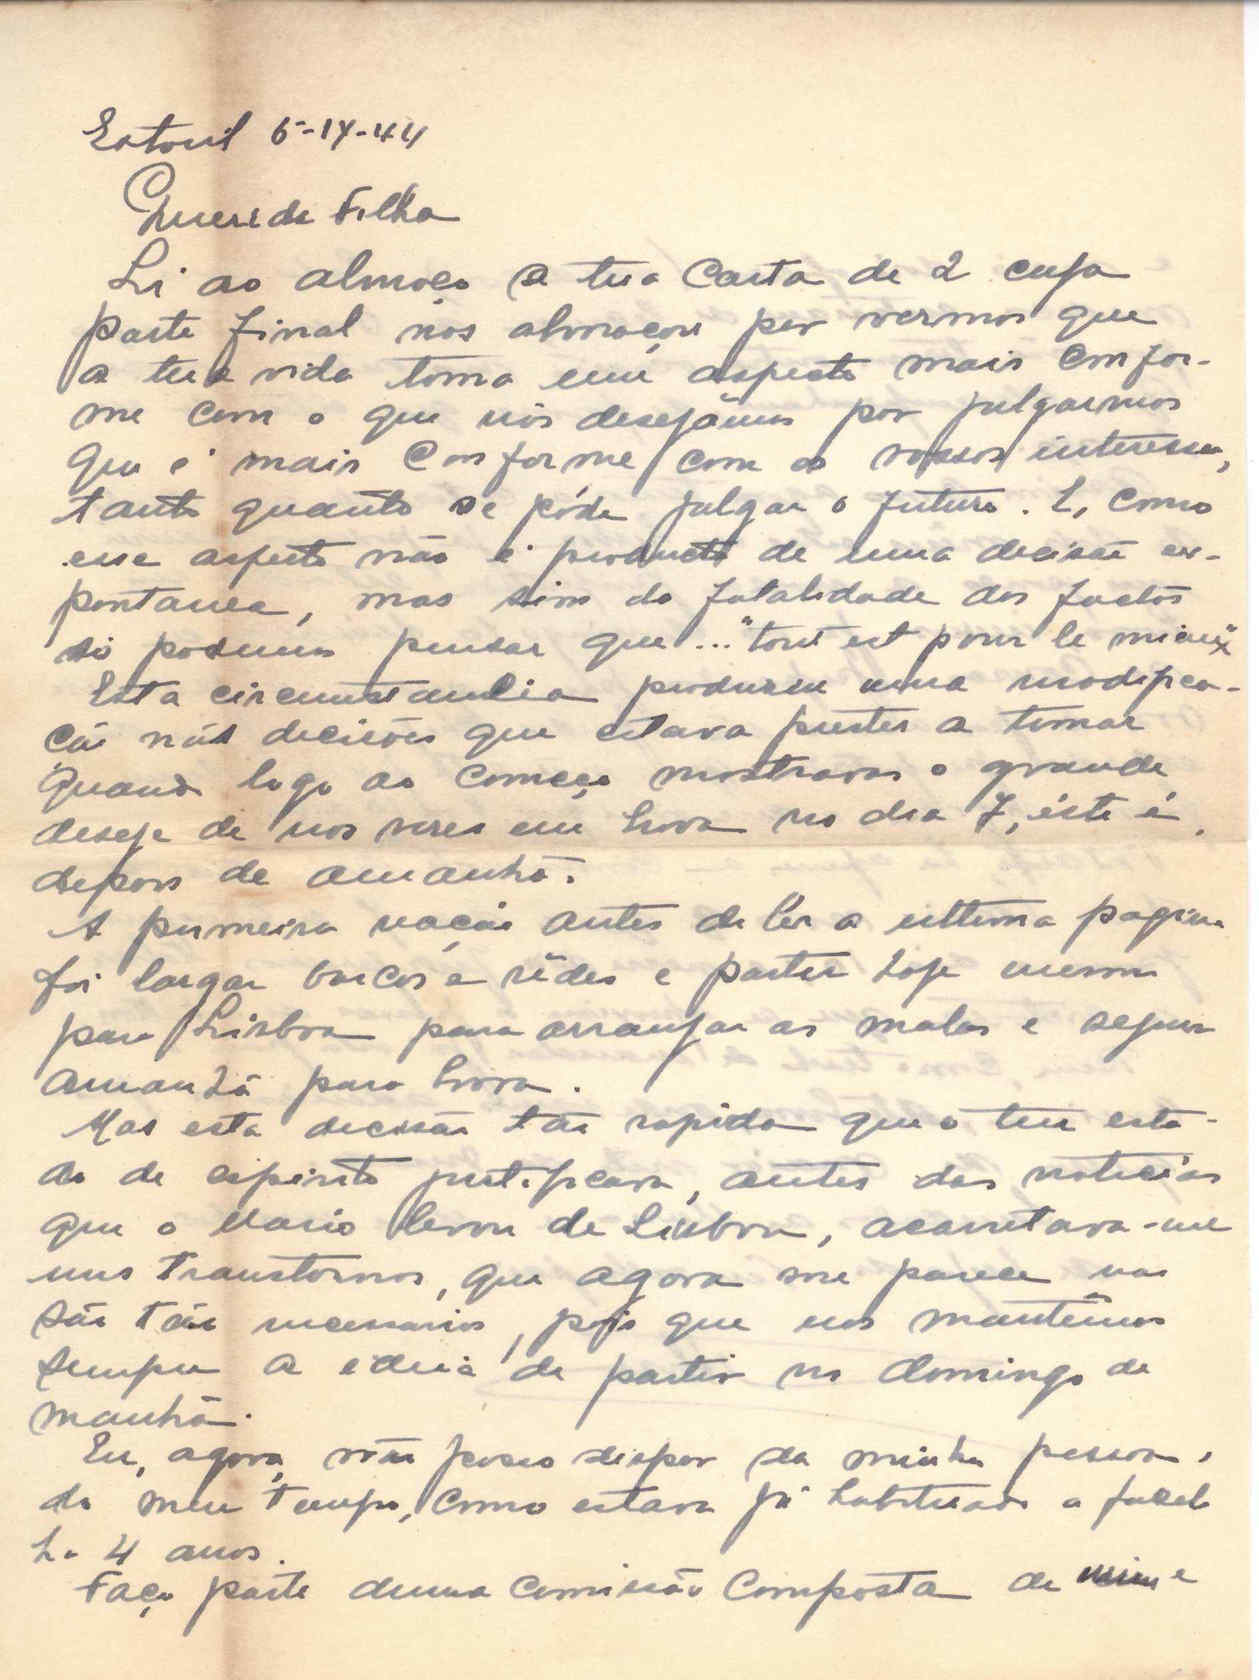 Estoril 5-IX-44
Querida Filha
Li ao almoço a tua Carta de 2 cuja
parte final nos almoçou por vermos que
a tua vida toma um aspecto mais confor-
me com o que nós desejâmos por julgarmos
que é mais conforme com os vossos interesses,
tanto quanto se póde julgar o futuro. E, como
esse aspecto não é producto de uma decisão es-
pontanea, mas sim da fatalidade dos factos
só podemos pensar que... "tout est pour le mieux"
Esta circumstancia produziu uma modifica-
ção nás decisões que estava prestes a tomar
quando logo ao começo mostravas o grande
desejo de nos veres em no dia 7, isto é,
depois de amanhã.
A primeira antes de lêr a ultima pagina
foi largar barcos e rêdes e partir hoje mesmo
para Lisboa para arranjar as malas e seguir
amanhã para
Mas esta decisão tão rapida que o teu esta-
do de espirito justificava, antes das noticias
que o Mario levou de Lisboa, acarretava-me
uns transtornos, que agora me parece nao
são tão necessarios, pois que nos mantêmos
sempre a ideia de partir no domingo de
manhã.
Eu, agora, não posso dispor da minha pessoa,
do meu tempo, como estava já habituado a fazel
ha 4 anos.
Faço parte duma Comissão Composta de mim e